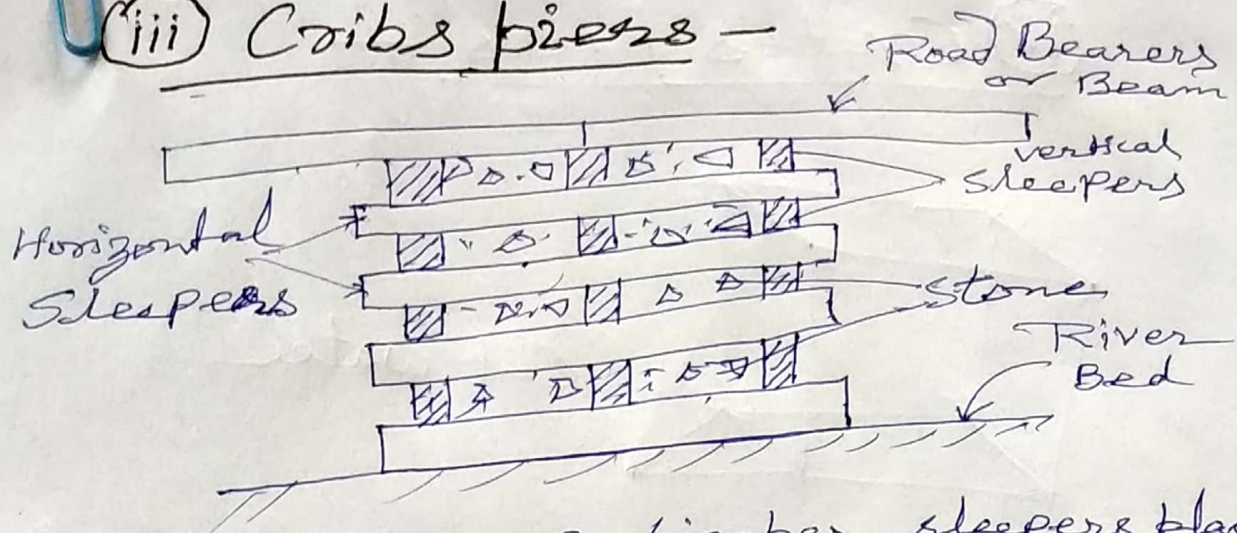 (iii) Cribs piers -
Road Bearers
or Beam
vertical
sleepers
Horizontal
Sleepers
Stone
River
Bed
sleepers